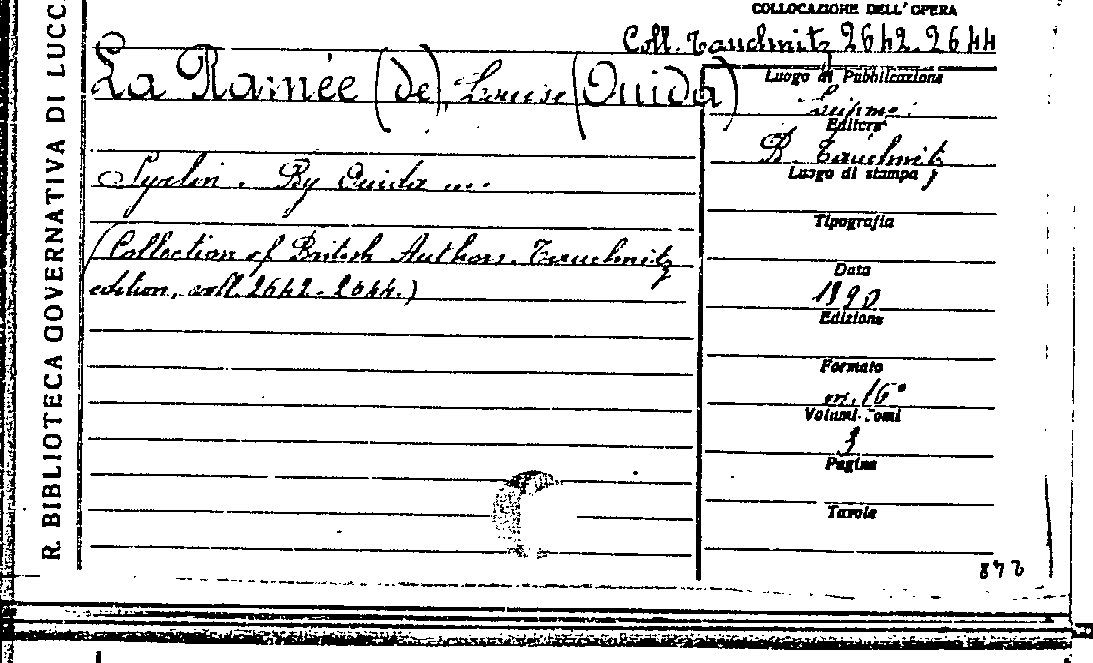 R. BIBLIOTECA GOVERNATIVA DI LUCC
COLLOCAZIONE DELL' OPERA
Coll. Tauchnitz 2642-2644
La Ramée (de), Louise (Ouida)
Syrlin. By Ouida ...
(Collection of British Authors. Tauchnitz
edition, voll. 2642-2644.)
Luogo di Pubblicazione
Editore
B. Tauchnitz
Luogo di stampa
Tipografia
Data
1890
Edizione
Formato
in 16°
Volumi-Tomi
3
Pagine
Tavole